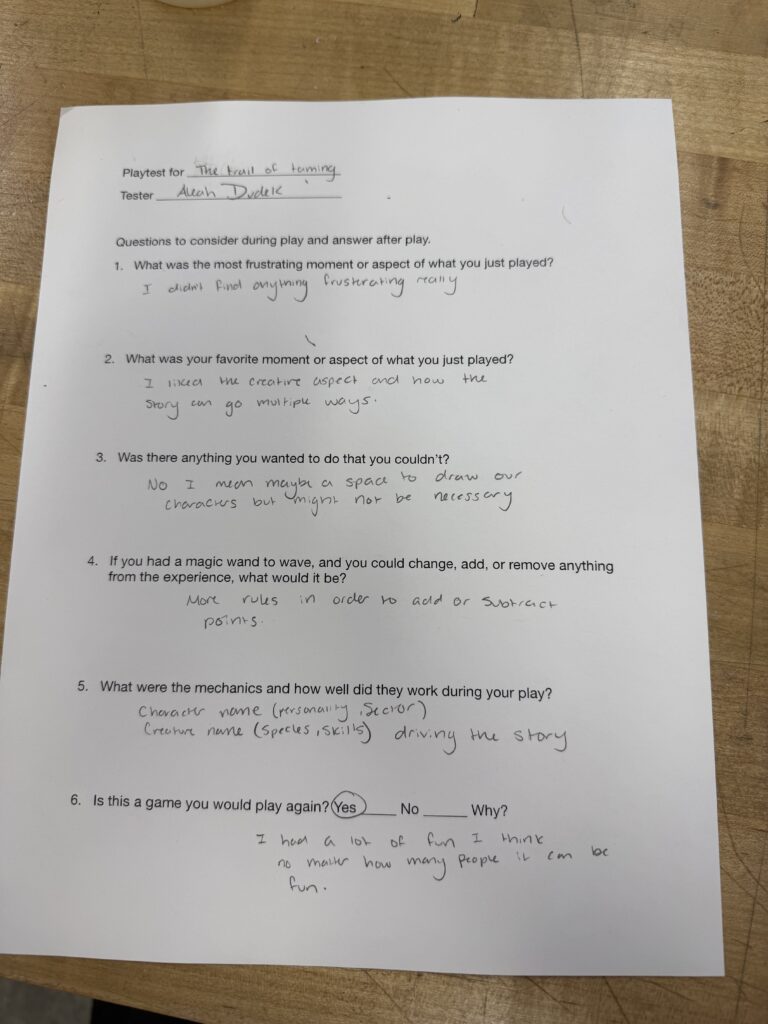 Playtest for The trail of taming
Tester Aleah Dudek
Questions to consider during play and answer after play.
1. What was the most frustrating moment or aspect of what you just played?
I didn't find anything frusterating really
2. What was your favorite moment or aspect of what you just played?
I liked the creative aspect and how the
story can go multiple ways.
3. Was there anything you wanted to do that you couldn't?
No I mean maybe a space to draw our
characters but might not be necessary
4. If you had a magic wand to wave, and you could change, add, or remove anything
from the experience, what would it be?
More rules in order to add or subtract
points.
5. What were the mechanics and how well did they work during your play?
Character name (personality, sector)
Creature name (species, skills) driving the story
6. Is this a game you would play again? Yes____ No ____ Why?
I had a lot of fun I think
no matter how many people it can be
fun.